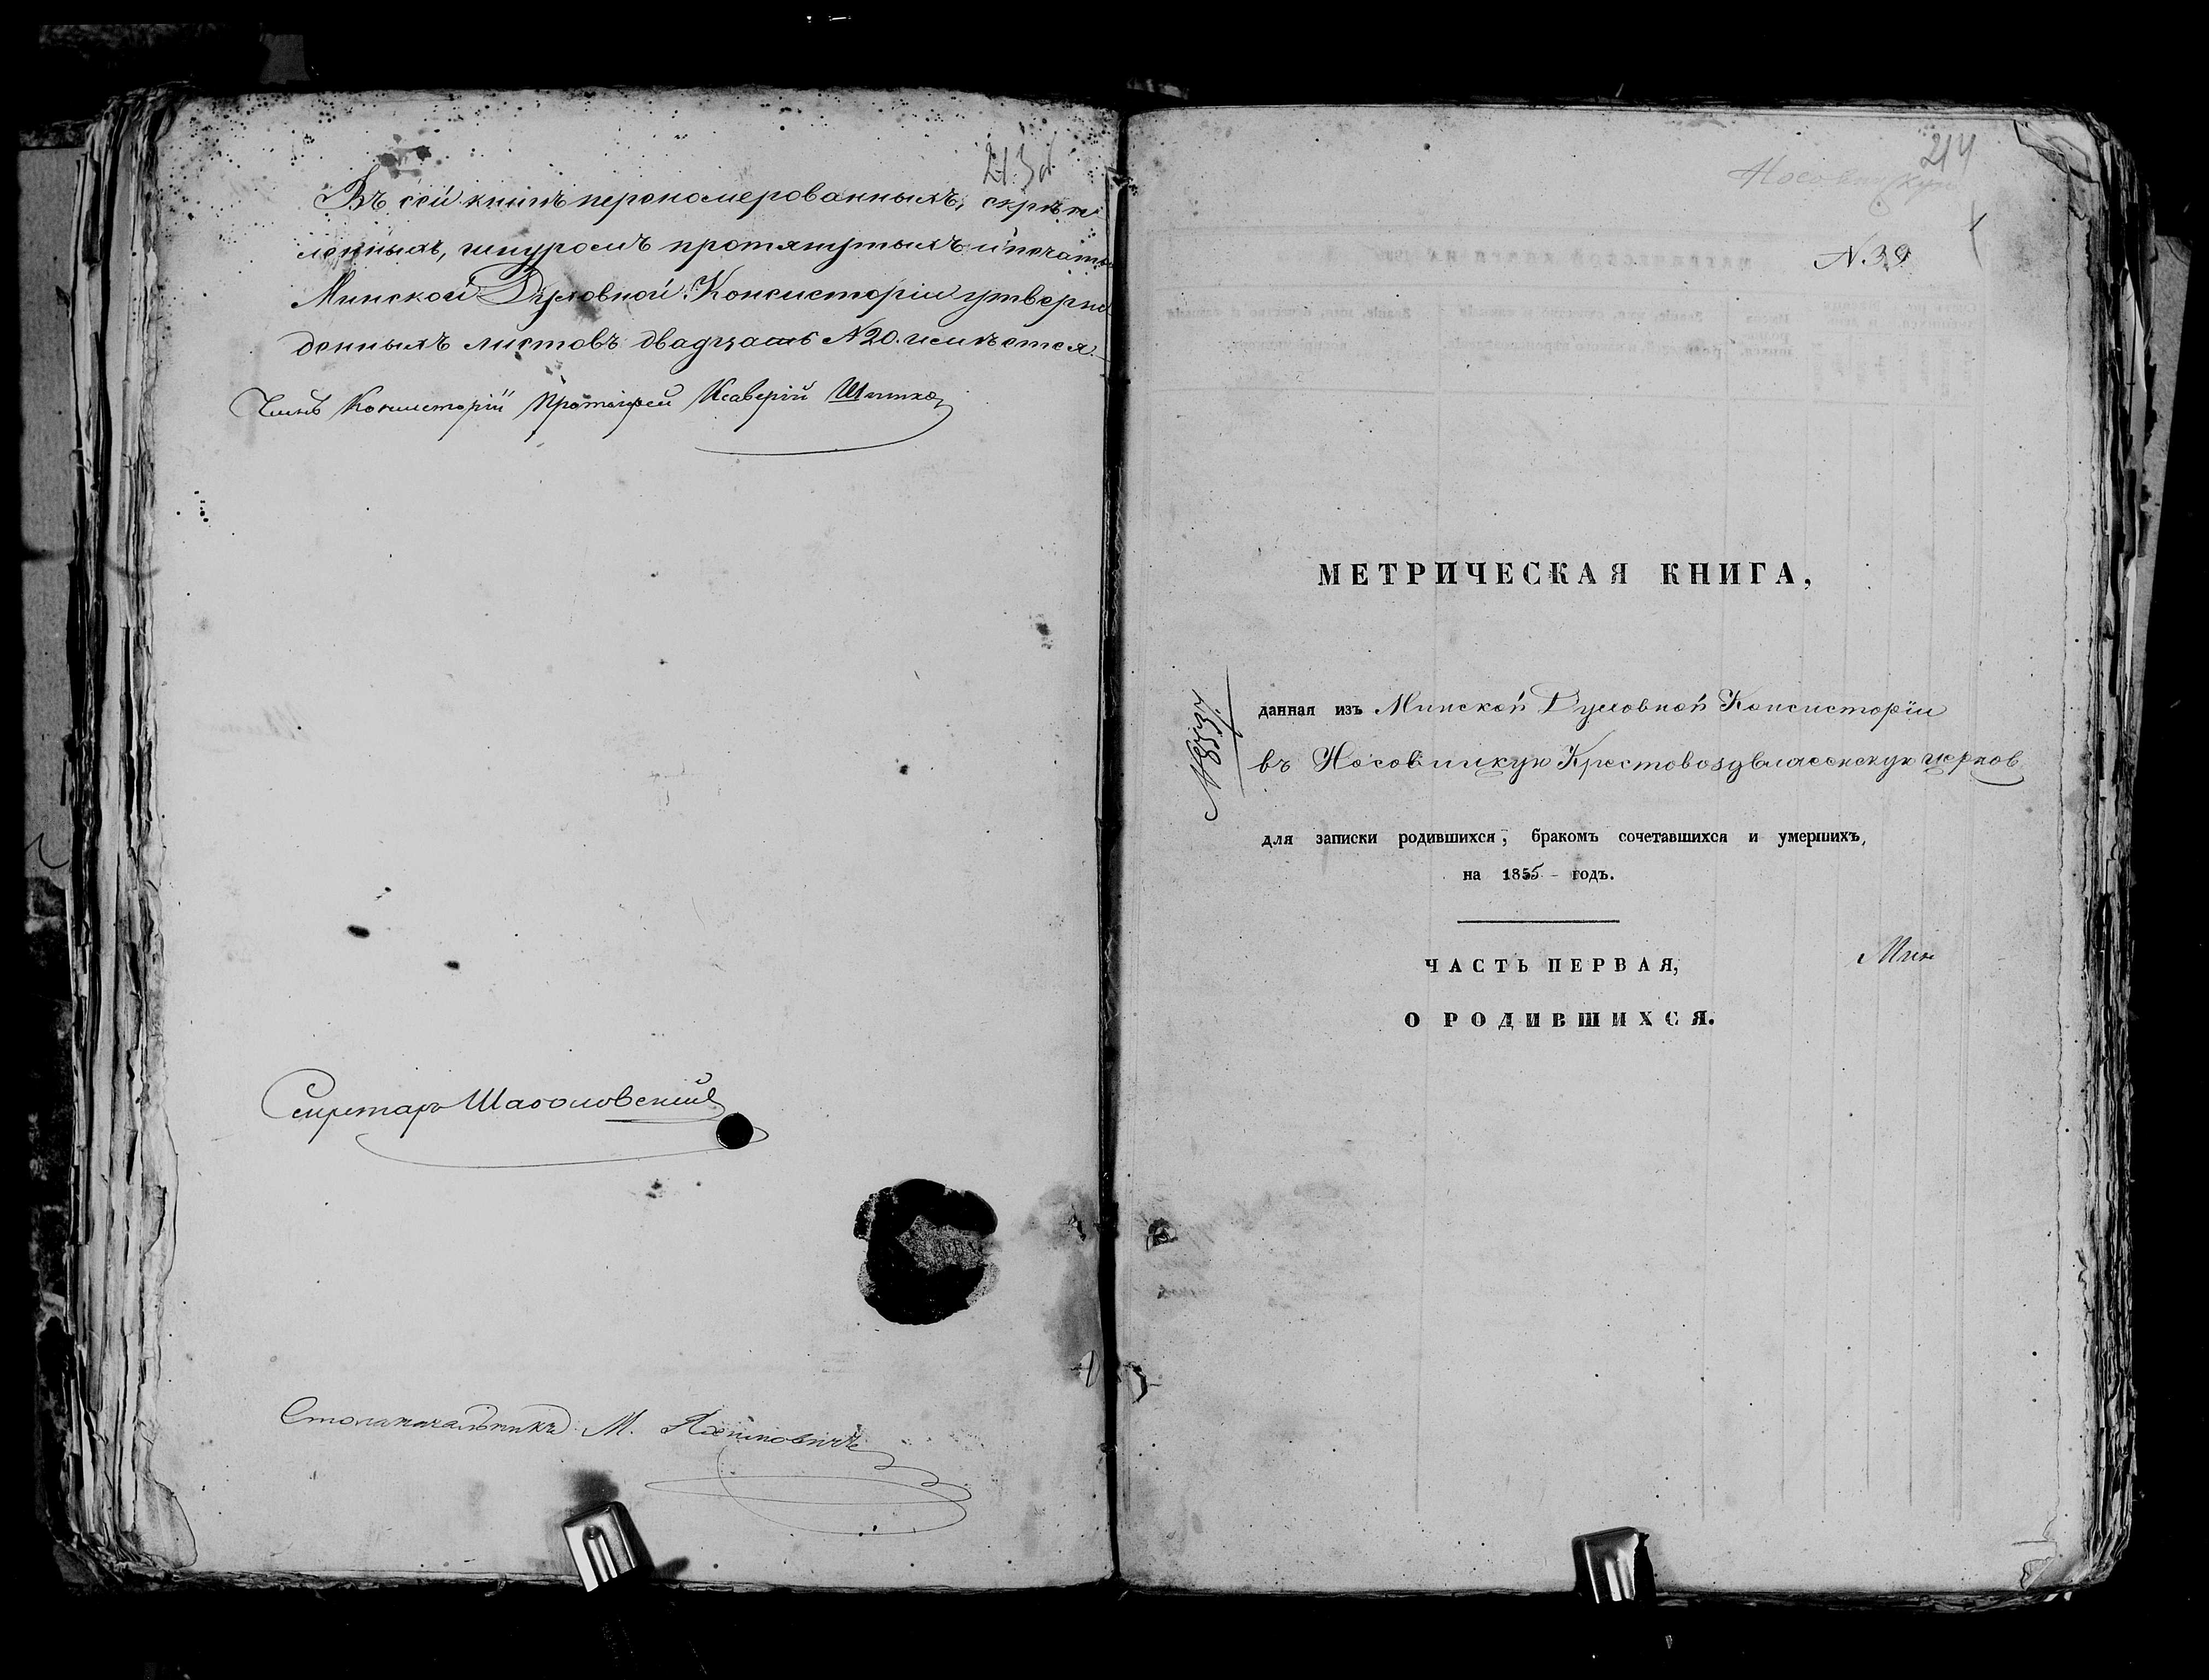 Въ сей книгѣ переномерованныхъ, скрѣп-
ленныхъ, шнуромъ протянутыхъ и печатью
Минской Духовной Консисторіи утверж-
денныхъ листовъ двадцать №20. имѣется.
Членъ Консисторіи Протоіерей Ксаверій
Секретарь
Столоначальникъ М.
214
№39
МЕТРИЧЕСКАЯ КНИГА,
№8537.
данная изъ Минской Духовной Консисторіи
въ Носовицкую Крестовоздвиженскую церковь
для записки родившихся, бракомъ сочетавшихся и умершихъ,
на 1855 годъ.
ЧАСТЬ ПЕРВАЯ,
Мин
О РОДИВШИХСЯ.